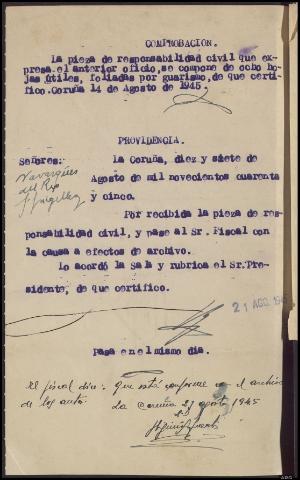 COMPROBACION.
La pieza de responsabilidad civil que ex-
presa el anterior oficio, se compone de ocho ho-
jas útiles, foliadas por guarismo, de que certi-
fico. Coruña 14 de Agosto de 1945.
PROVIDENCIA.
Señores:
del Rio
La Coruña, diez y siete de
Agosto de mil novecientos cuarenta
y cinco.
Por recibida la pieza de res-
ponsabilidad civil, y pase al Sr. Fiscal con
la causa a efectos de archivo.
Lo acordó la Sala y rubrica el Sr. Pre-
sidente, de que certifico.
21 AGO. 194
Pasa en el mismo dia.
El fiscal dice: que está conforme con el archivo
de los autos. La Coruña 27 agosto 1945